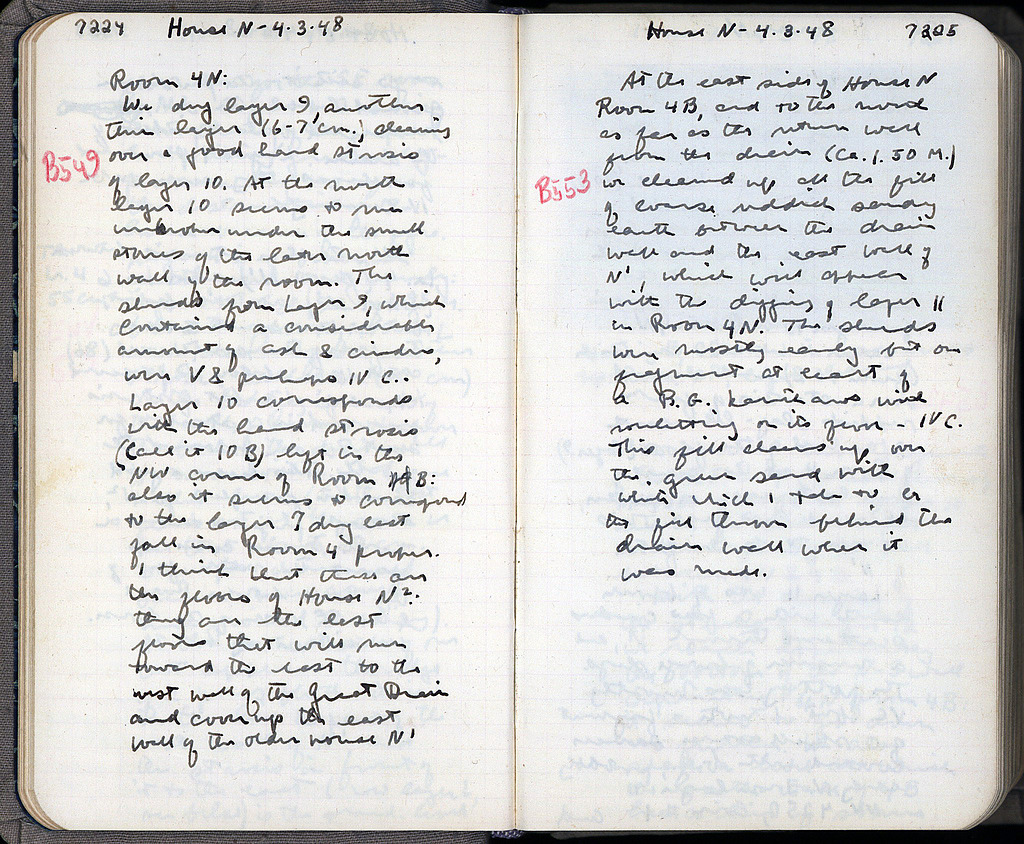 7224 House N - 4.3.48
Room 4N:
We dug layer 9, another
thin layer (6-7 cm.) cleaning
B549
over a good hard strosis
of layer 10. At the north
layer 10 seems to run
unbroken under the small
stones of the later north
wall of the room. The
sherds from Layer 9, which
contained a considerable
amount of ash & cinders,
were V & perhaps IV C..
Layer 10 corresponds
with the hard strosis
(call it 10B) left in the
NW corner of Room 4B:
also it seems to correspond
to the layer 7 dug last
fall in Room 4 proper.
I think that these are
the floors of House N²:
they are the last
floors that will run
toward the east to the
west wall of the Great Drain
and cover up the east
wall of the older house N'
House N - 4.3.48 7225
At the east side of House N
Room 4B, and to the north
as far as the return wall
from the drain (Ca. 1.50 M.)
B553
we cleaned up all the fill
of coarse reddish sandy
earth between the drain
wall and the east wall of
N', which will appear
with the digging of layer 11
in Room 4N. The sherds
were mostly early but one
fragment at least of
a B.G. kantharos with
rouletting on its floor - IV C.
This fill cleans up over
the green sand with
white which I take to be
the fill thrown behind the
drain wall when it
was made.